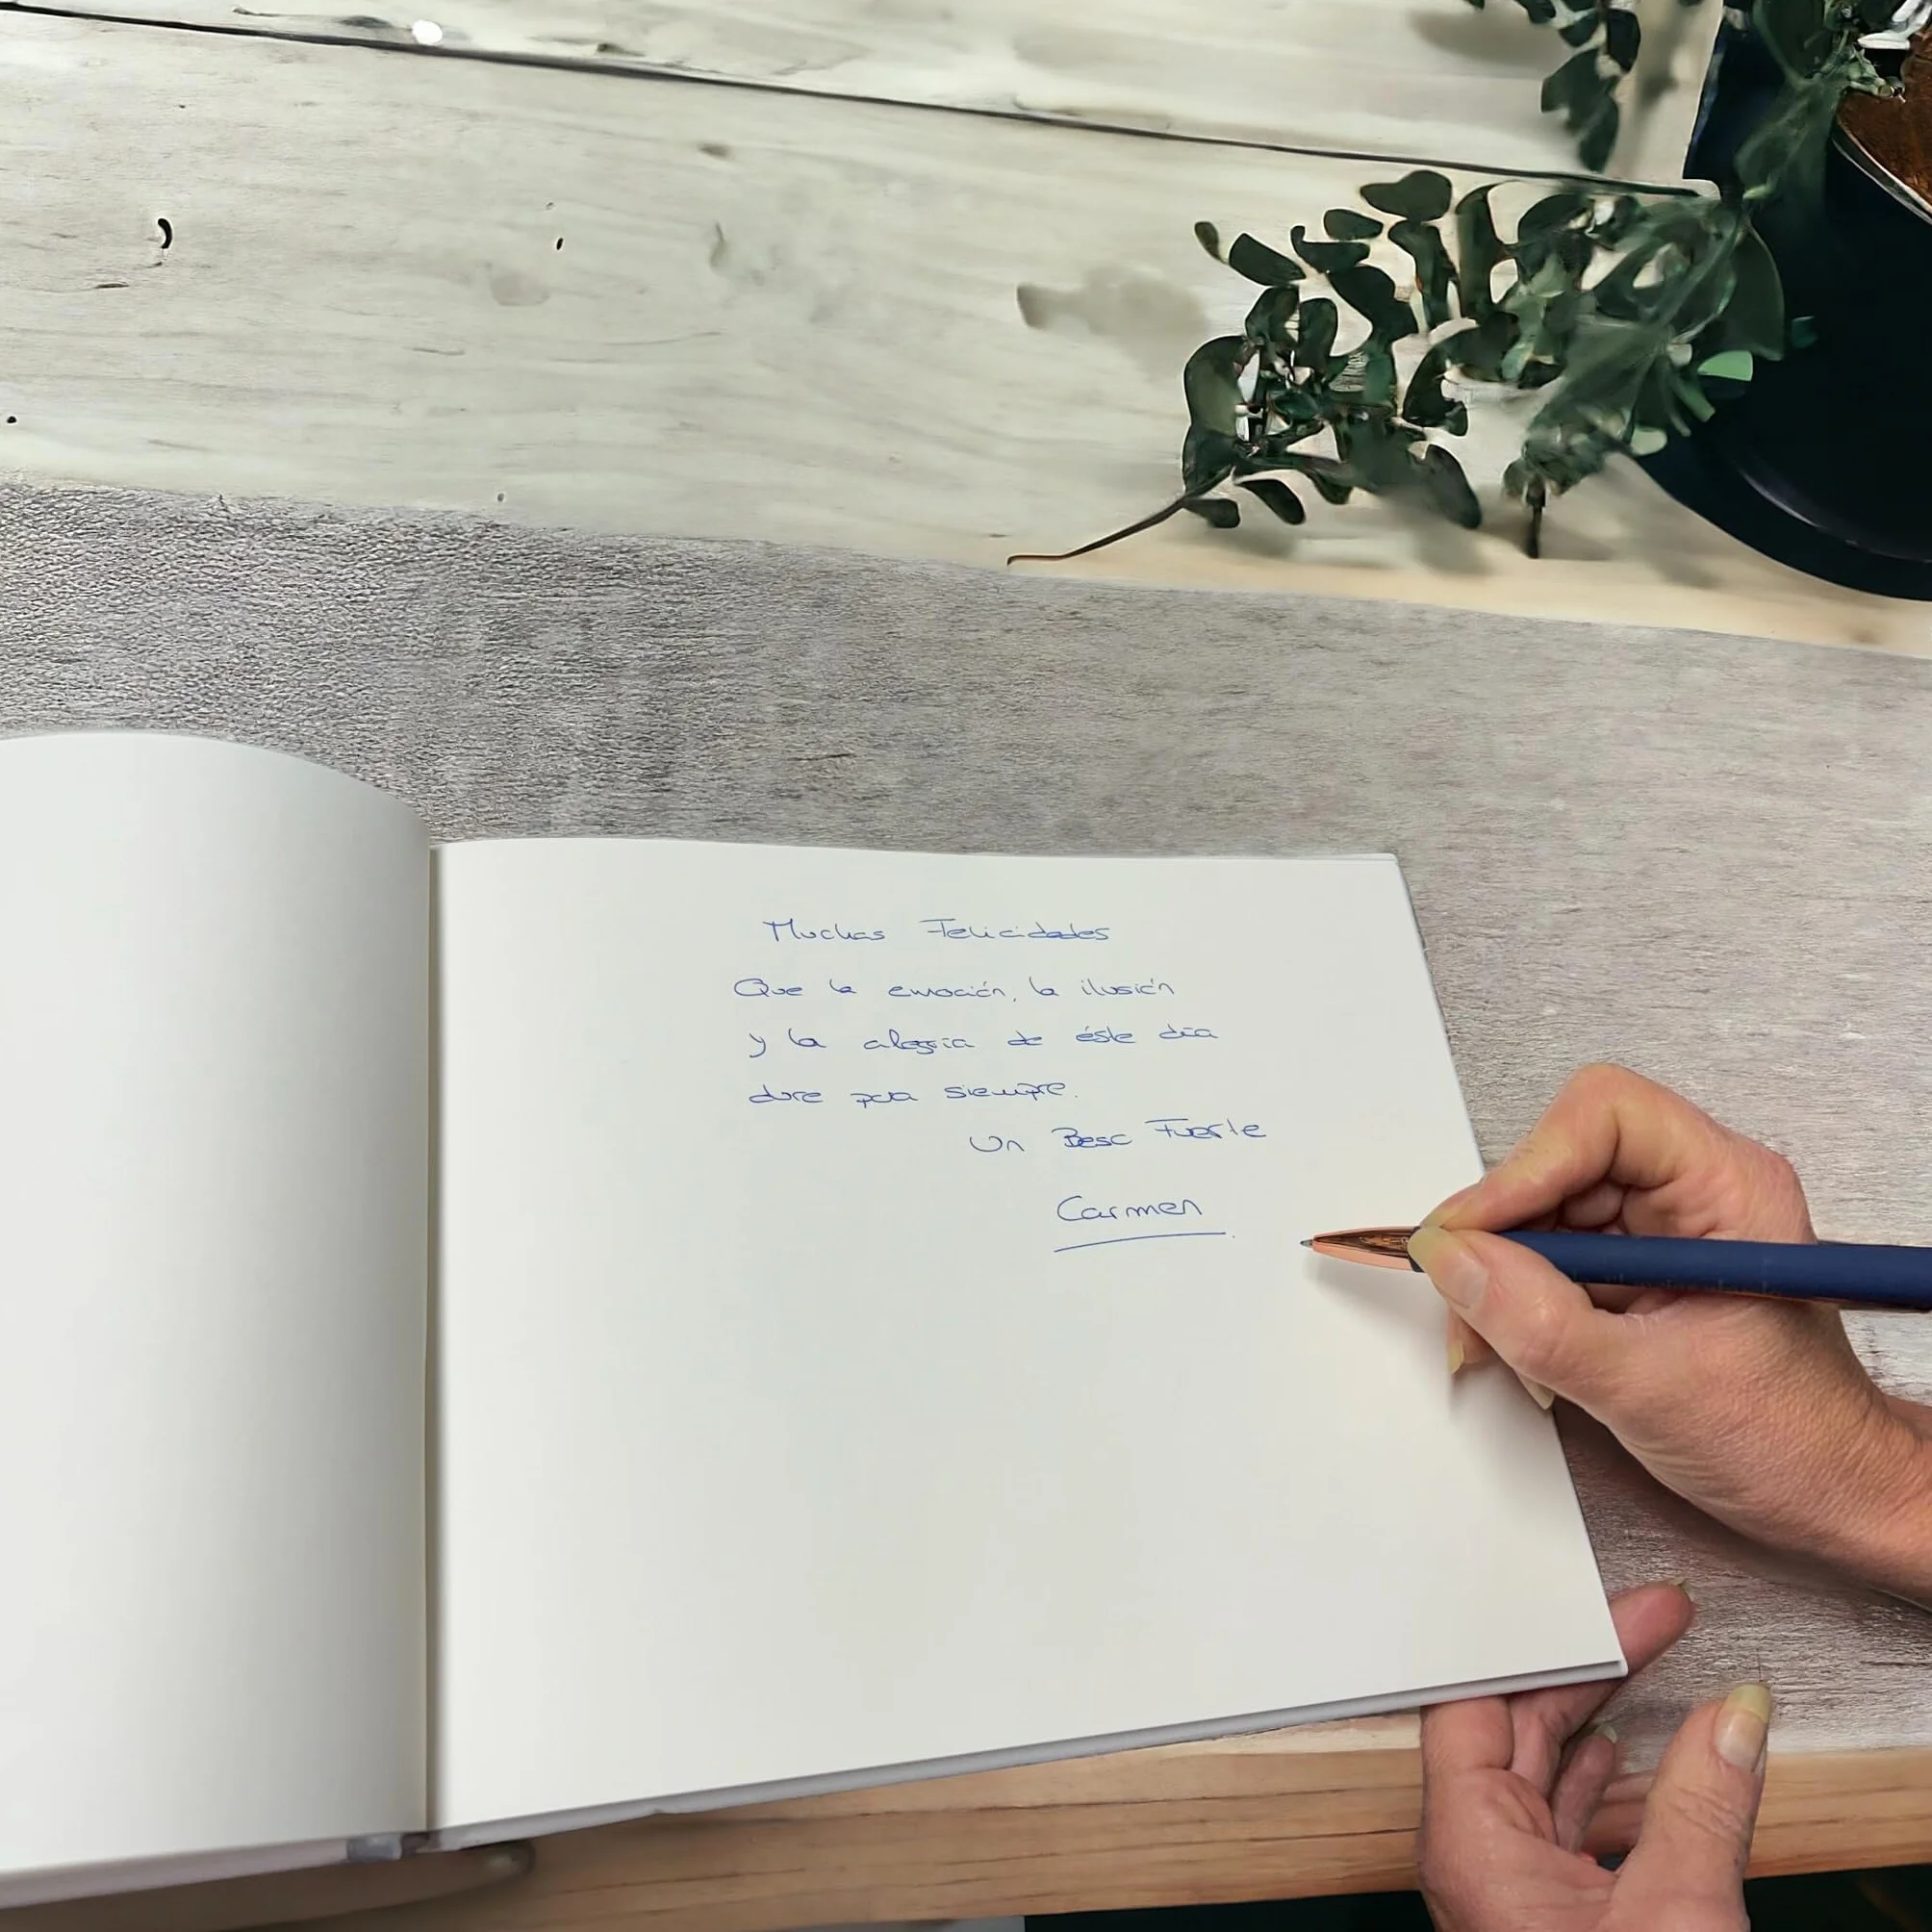 Muchas Felicidades
Que la emoción, la ilusión
y la alegría de éste día
dure para siempre.
Un Beso Fuerte
Carmen